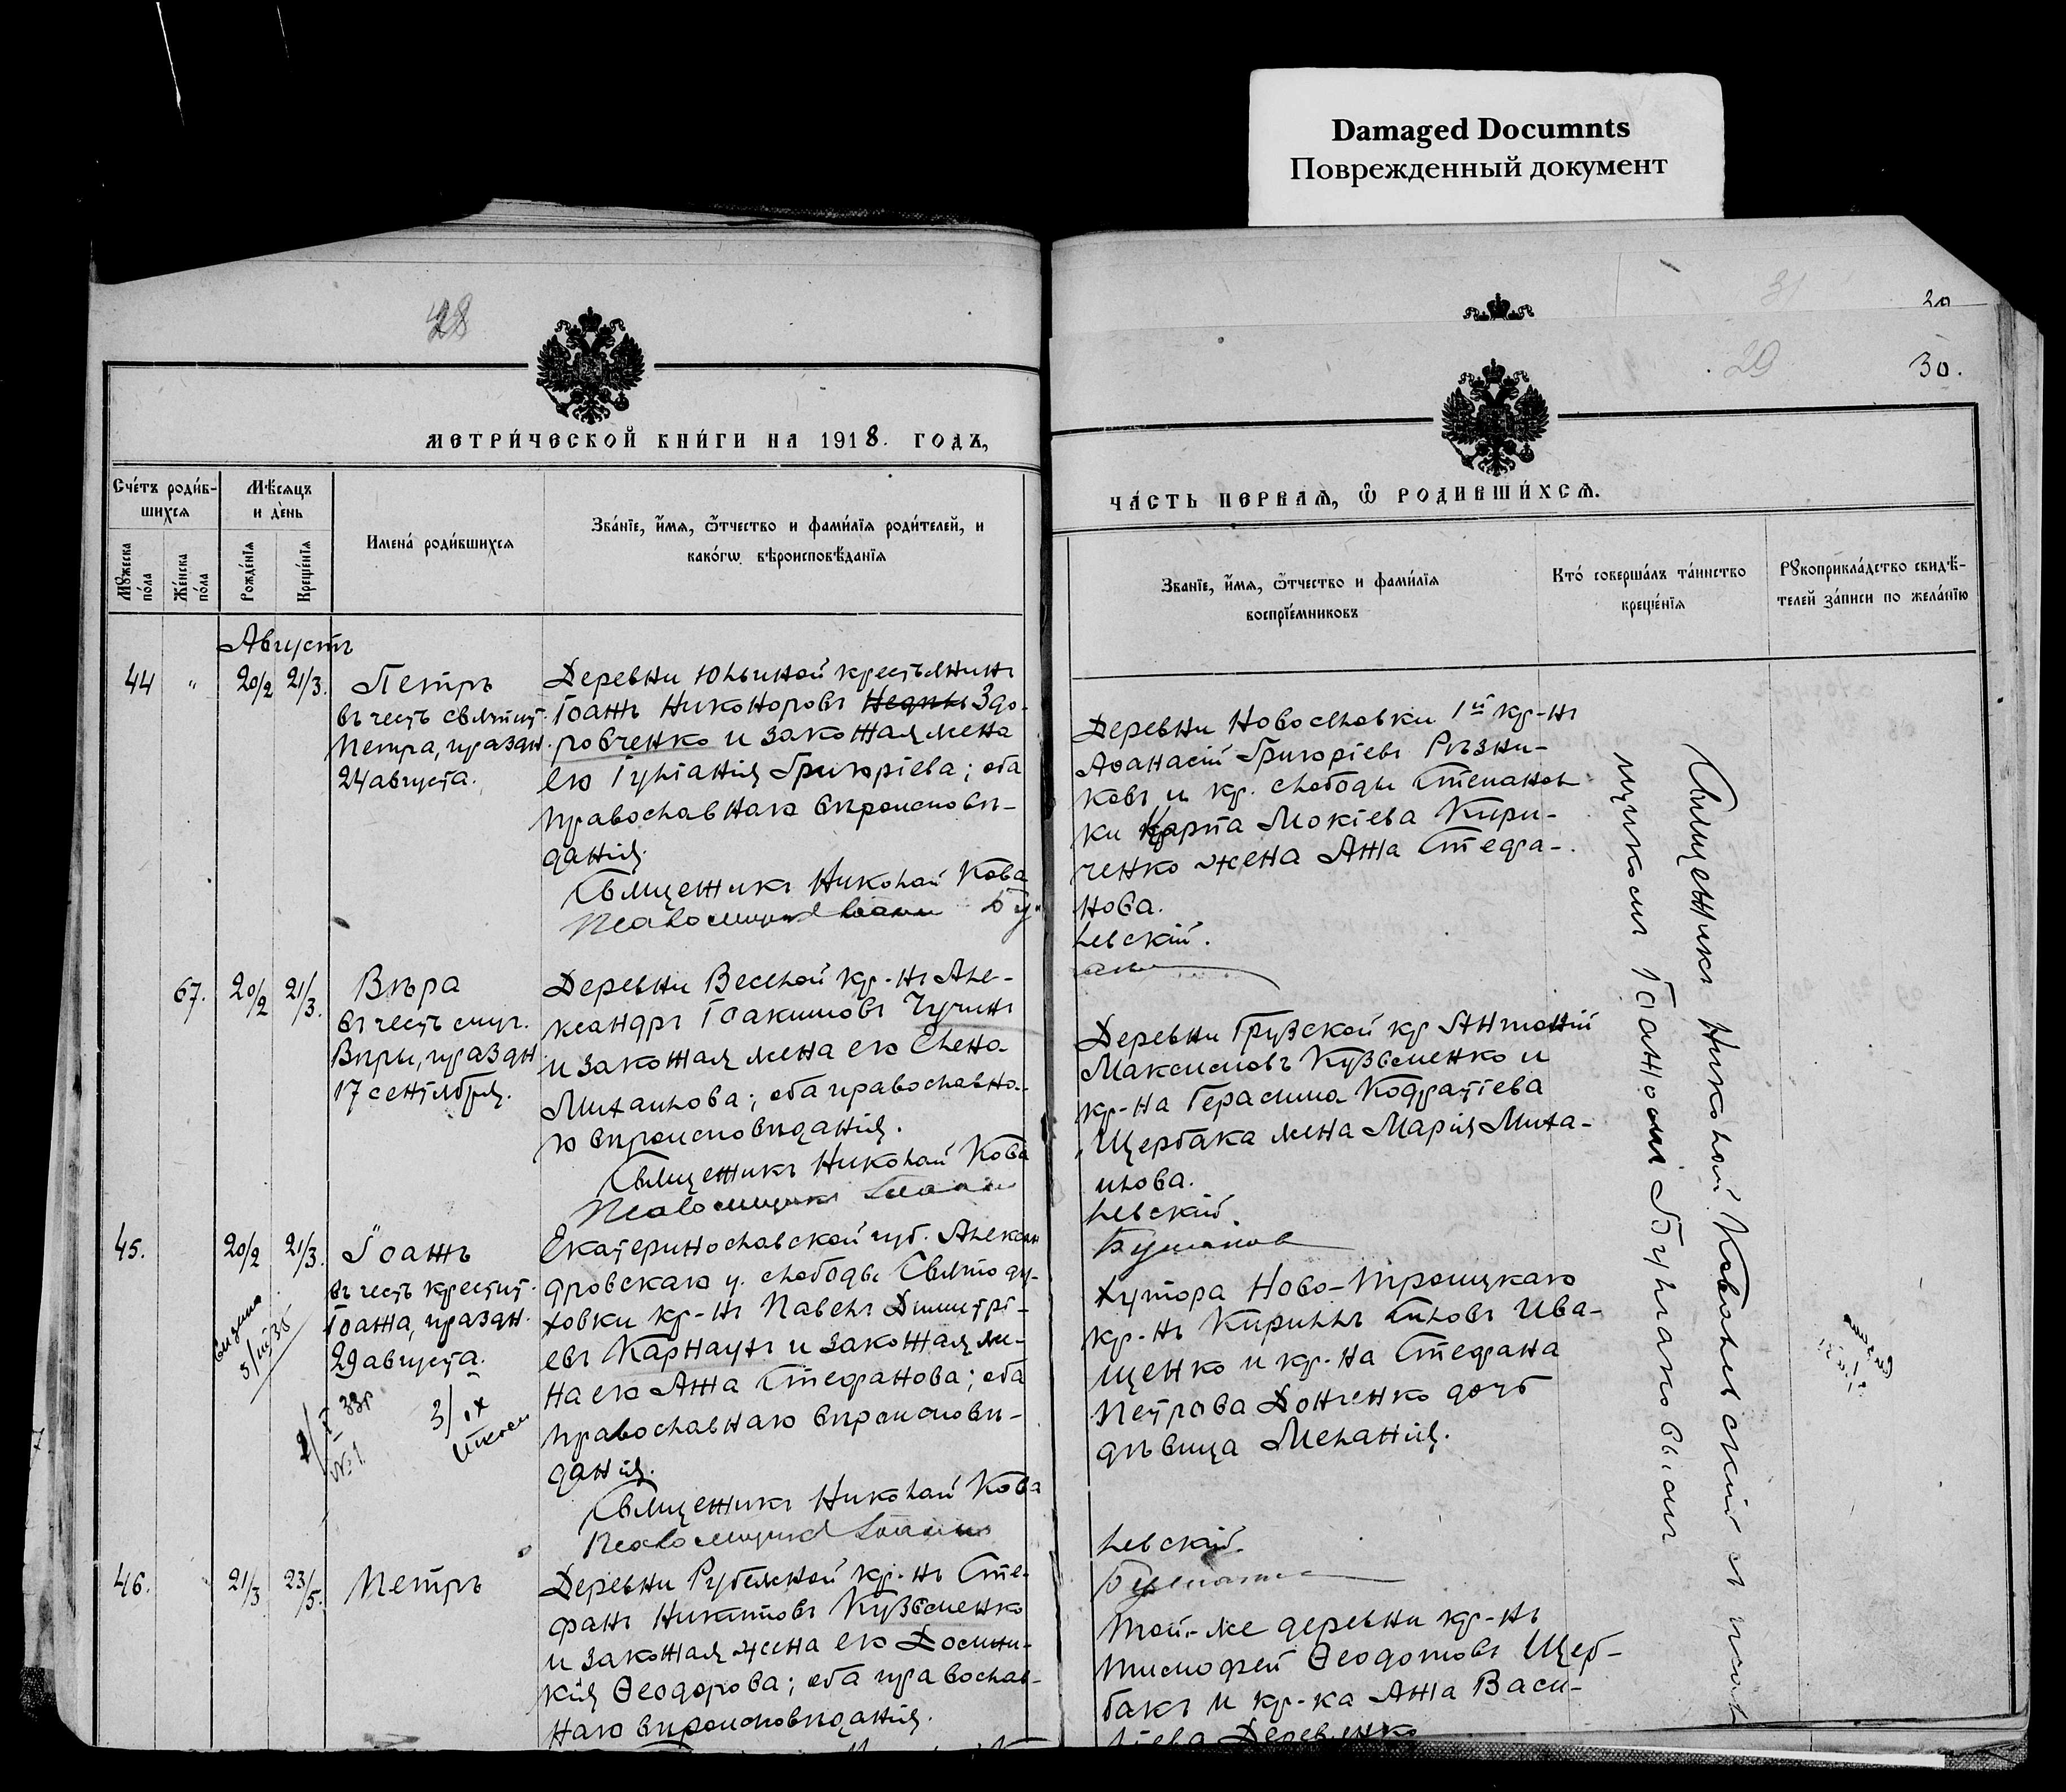 Damaged Documnts
Поврежденный документ
28
МЕТРИ́ЧЕСКОЙ КНИ́ГИ НА 1918. ГОДЪ,
Сче́тъ роди́в-
шихся
Мѣ́сяцъ
и де́нь
Имена́ роди́вшихся
Зва́нїе, и҆́мя, ѻ҆́тчество и фами́лїя роди́телей, и
како́гѡ вѣроисповѣ́данїя
Мꙋ́жеска
по́ла
Же́нска
по́ла
Рожде́нїя
Креще́нїя
Августъ
44
"
20/2
21/3.
Петръ
въ честь святит.
Петра, праздн.
24 августа.
Деревни Юльиной крестьянинъ
Іоаннъ Никоноровъ Здо-
ровченко и законная жена
его Іуліанія Григоріева; оба
православнаго вѣроисповѣ-
данія.
Священникъ Николай Кова
Псаломщикъ Іоаннъ Бу-
67.
20/2
21/3.
Вѣра
въ честь муч.
Вѣры, праздн.
17 сентября.
Деревни Веселой кр-нъ Але-
ксандръ Іоакимовъ Чучинъ
и законная жена его Елена
Михаилова; оба православна-
го вѣроисповѣданія.
Священникъ Николай Кова
Псаломщикъ Іоаннъ
45.
20/2
21/3.
Іоаннъ
въ честь крестит.
Іоанна, праздн.
29 августа.
5/III 36
2/I 33г.
№1
3/IX
Екатеринославской губ. Алексан
дровскаго у. слободы Святоду-
ховки кр-нъ Павелъ Димитрі-
евъ Карнаухъ и законная же-
на его Анна Стефанова; оба
православнаго вѣроисповѣ-
данія.
Священникъ Николай Кова
Псаломщикъ Іоаннъ
46.
21/3
23/5.
Петръ
Деревни Рубежной кр-нъ Сте-
фанъ Никитовъ Кузьменко
и законная жена его Домни-
кія Ѳеодорова; оба православ-
наго вѣроисповѣданія.
31
29
30.
ЧА́СТЬ ПЕ́РВАѦ, Ѡ҆ РОДИВШИ́ХСѦ.
Зва́нїе, и҆́мя, ѻ҆́тчество и фами́лїя
воспрїе́мниковъ
Кто́ соверша́лъ та́инство
креще́нїя
Рꙋкоприкла́дство свидѣ́-
телей за́писи по жела́нїю
Деревни Новоселовки 1й кр-нъ
Аѳанасій Григоріевъ Рѣзни-
ковъ и кр. слободы Степанов-
ки Карпа Мокіева Кири-
ченко жена Анна Стефа-
нова.
левскій.
Деревни Грузской кр Антоній
Максимовъ Кузьменко и
кр-на Герасима Кодратіева
Щербака жена Марія Миха-
илова.
левскій.
Булаковъ
Хутора Ново-Троицкаго
кр-нъ Кириллъ Ива-
щенко и кр-на Стефана
Петрова Донченко дочь
дѣвица Меланія.
левскій.
Той-же деревни кр-нъ
Тимофей Ѳеодотовъ Щер-
бакъ и кр-ка Анна Васи-
ліева
Священникъ Николай Ковалевскій съ псалом
щикомъ Іоанномъ Булаковымъ